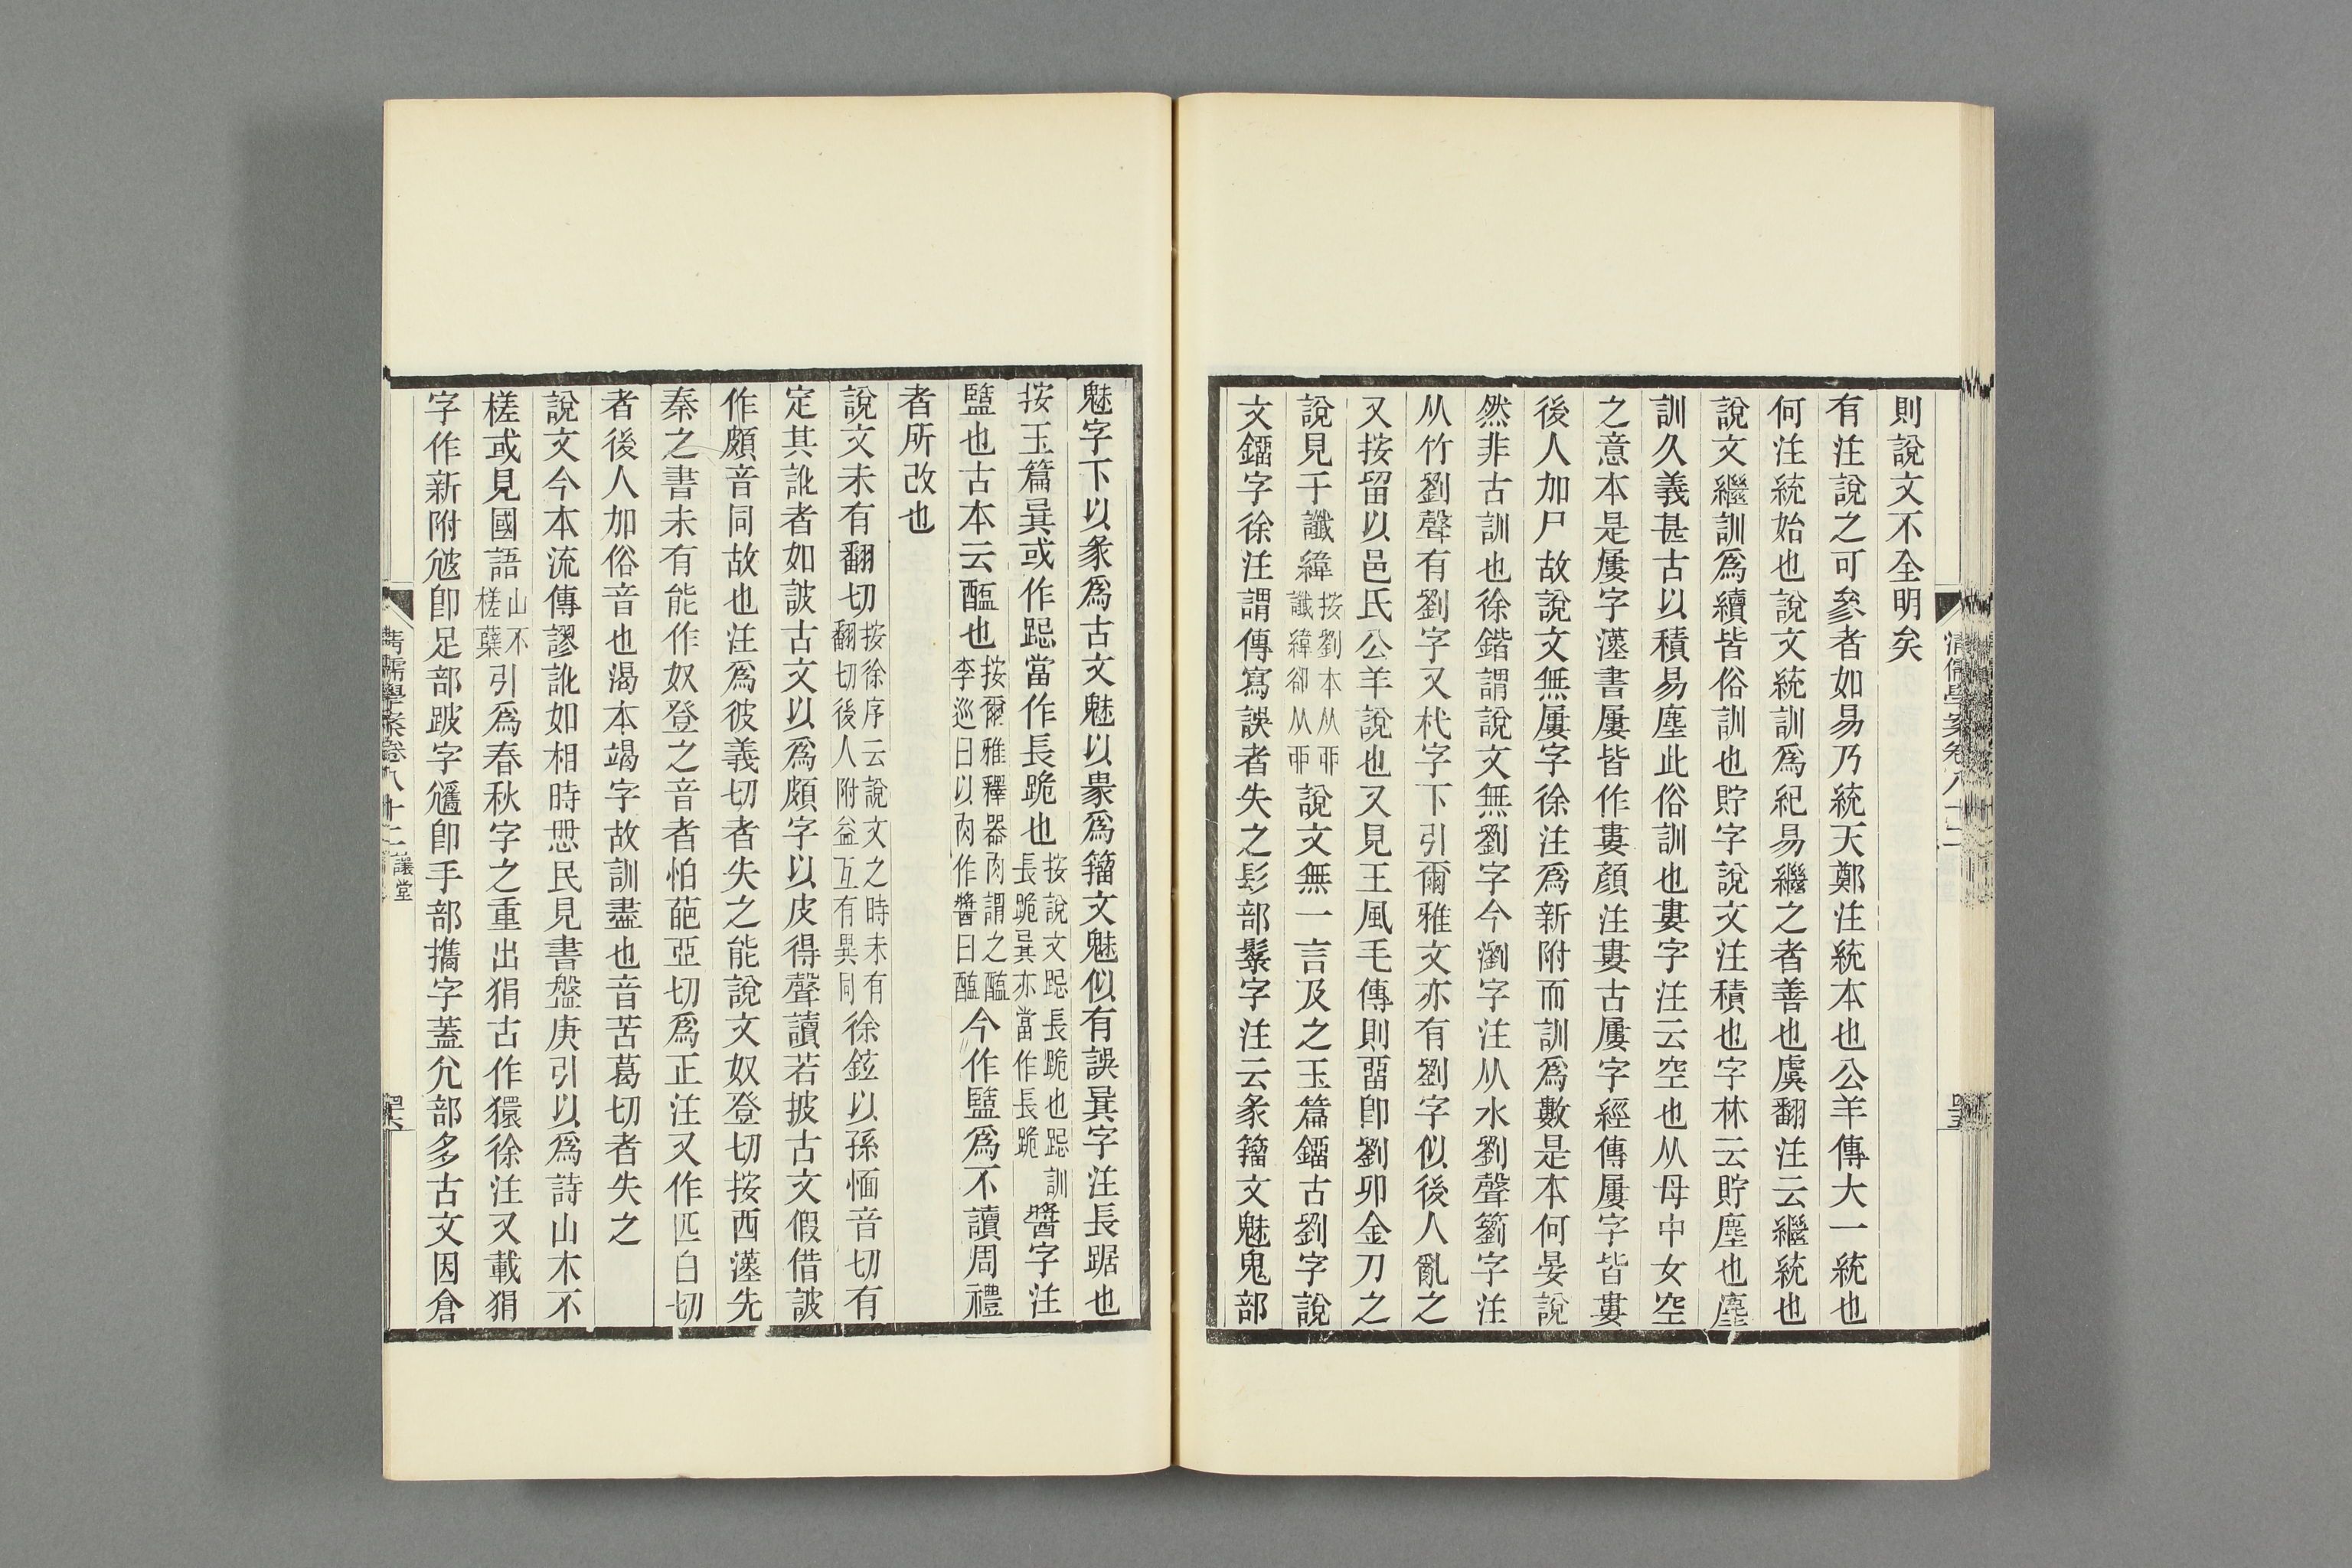 則說文不全明矣
有注說之可參者如易乃統天鄭注統本也公羊傳大一統也
何注統始也說文統訓爲紀易繼之者善也虞翻注云繼統也
說文繼訓爲續皆俗訓也貯字說文注積也字林云貯塵也塵
訓久義甚古以積易塵此俗訓也婁字注云空也从母中女空
之意本是屢字漢書屢皆作婁顏注婁古屢字經傳屢字皆婁
後人加尸故說文無屢字徐注爲新附而訓爲數是本何晏說
然非古訓也徐鍇謂說文無劉字今瀏字注从水劉聲籀字注
从竹劉聲有劉字又杙字下引爾雅文亦有劉字似後人亂之
又按留以邑氏公羊說也又見王風毛傳則畱卽劉卯金刀之
說見于讖緯按劉本从丣讖緯卻从丣說文無一言及之玉篇鐂古劉字說
文鐂字徐注謂傳寫誤者失之髟部鬏字注云彖籀文魅鬼部
魅字下以彖爲古文魅以㣇爲籀文魅似有誤㠱字注長踞也
按玉篇㠱或作跽當作長跪也按說文跽長跪也跽訓長跪㠱亦當作長跪醬字注
盬也古本云醢也按爾雅釋器肉謂之醢李巡曰以肉作醬曰醢今作盬爲不讀周禮
者所改也
說文未有翻切按徐序云說文之時未有翻切後人附益互有異同徐鉉以孫愐音切有
定其訛者如詖古文以爲頗字以皮得聲讀若披古文假借詖
作頗音同故也注爲彼義切者失之能說文奴登切按西漢先
秦之書未有能作奴登之音者怕葩亞切爲正注又作匹白切
者後人加俗音也渴本竭字故訓盡也音苦葛切者失之
說文今本流傳謬訛如相時愳民見書盤庚引以爲詩山木不
槎或見國語山不槎蘖引爲春秋字之重出狷古作獧徐注又載狷
字作新附尳卽足部跛字尷卽手部攜字蓋尣部多古文因倉
清儒學案卷八十二